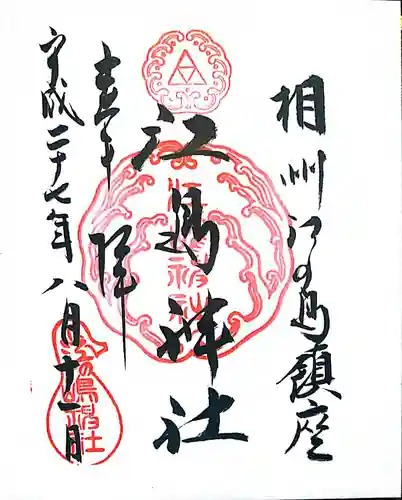 相州江の島鎮座
江島神社
奉拝
平成二十七年八月十一日
江島神社